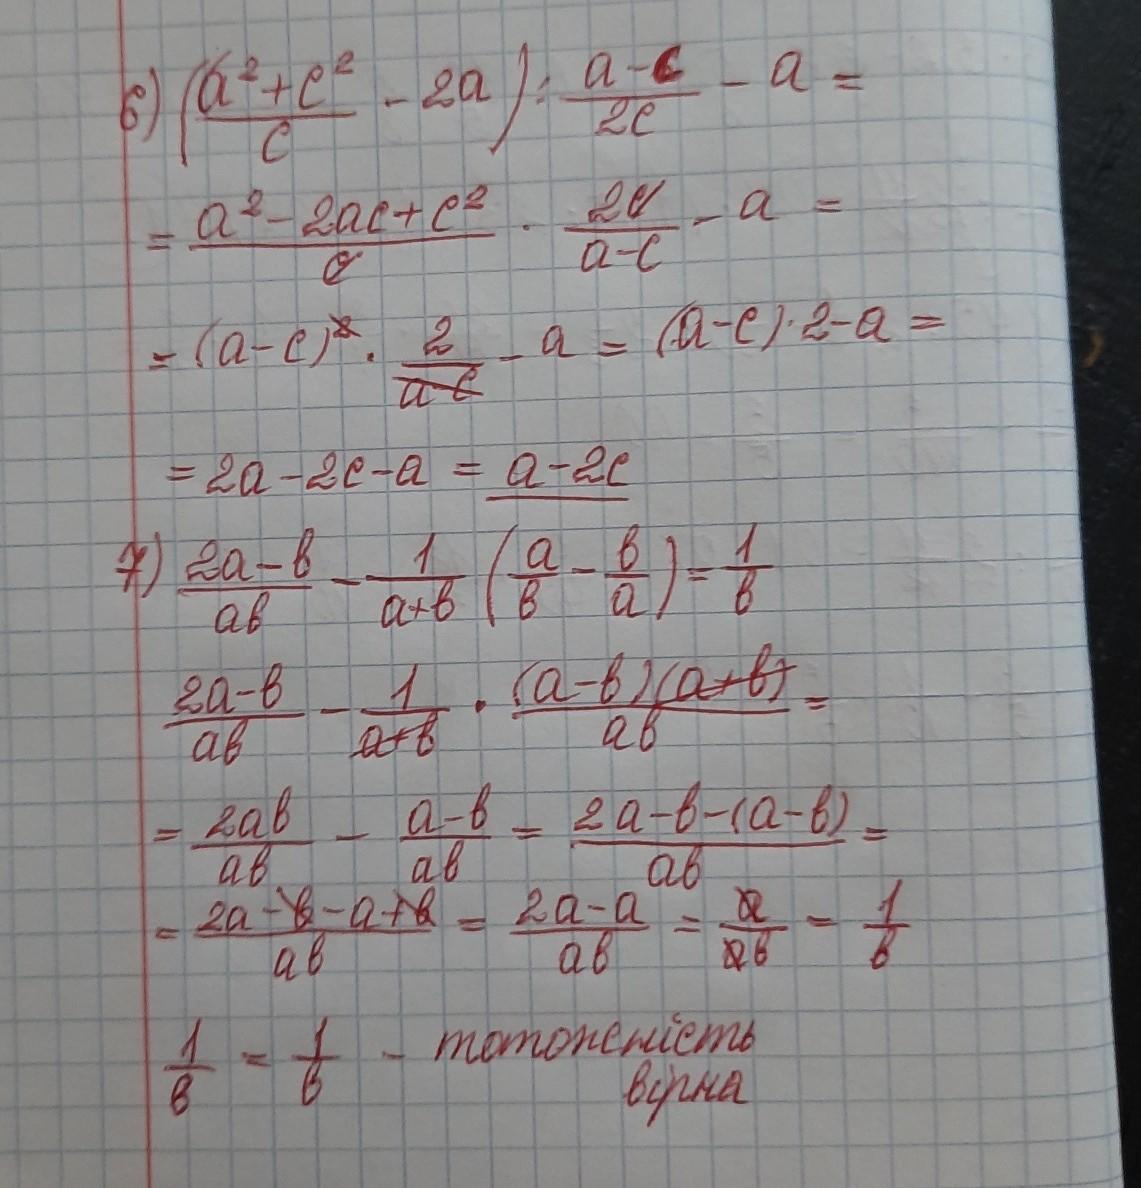 6) ((a²+c²)/c - 2a) : (a-c)/2c - a =
= (a²-2ac+c²)/c · 2c/(a-c) - a =
= (a-c)² · 2/(a-c) - a = (a-c)·2-a =
= 2a-2c-a = a-2c
7) (2a-b)/ab - 1/(a+b) (a/b - b/a) = 1/b
(2a-b)/ab - 1/(a+b) · (a-b)(a+b)/ab =
= 2ab/ab - (a-b)/ab = (2a-b-(a-b))/ab =
= (2a-b-a+b)/ab = (2a-a)/ab = a/ab = 1/b
1/b = 1/b - тотожність
вірна